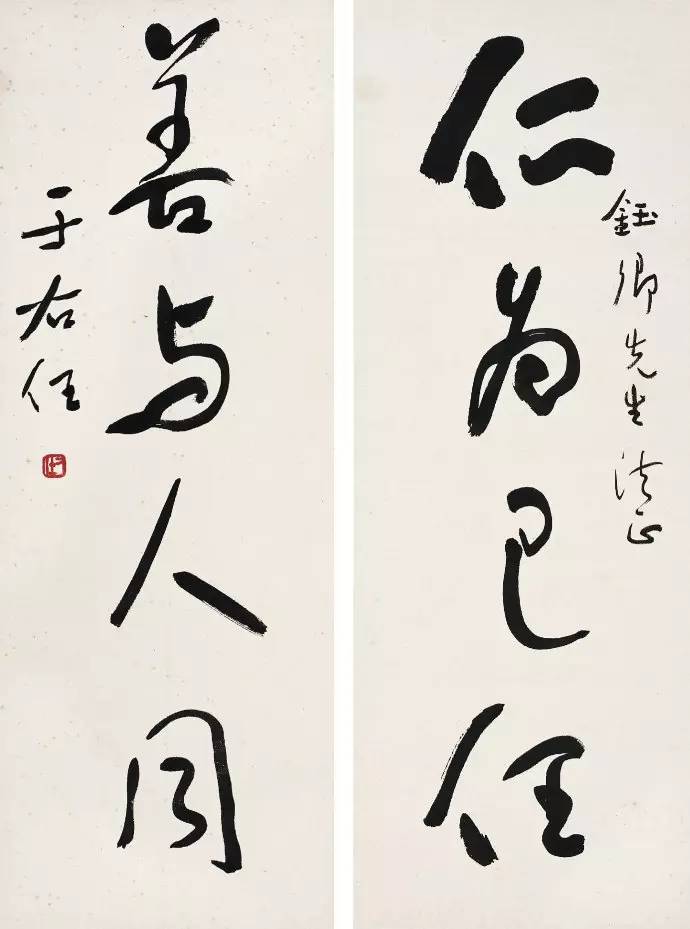 仁为己任
鈺卿先生法正
善与人同
于右任